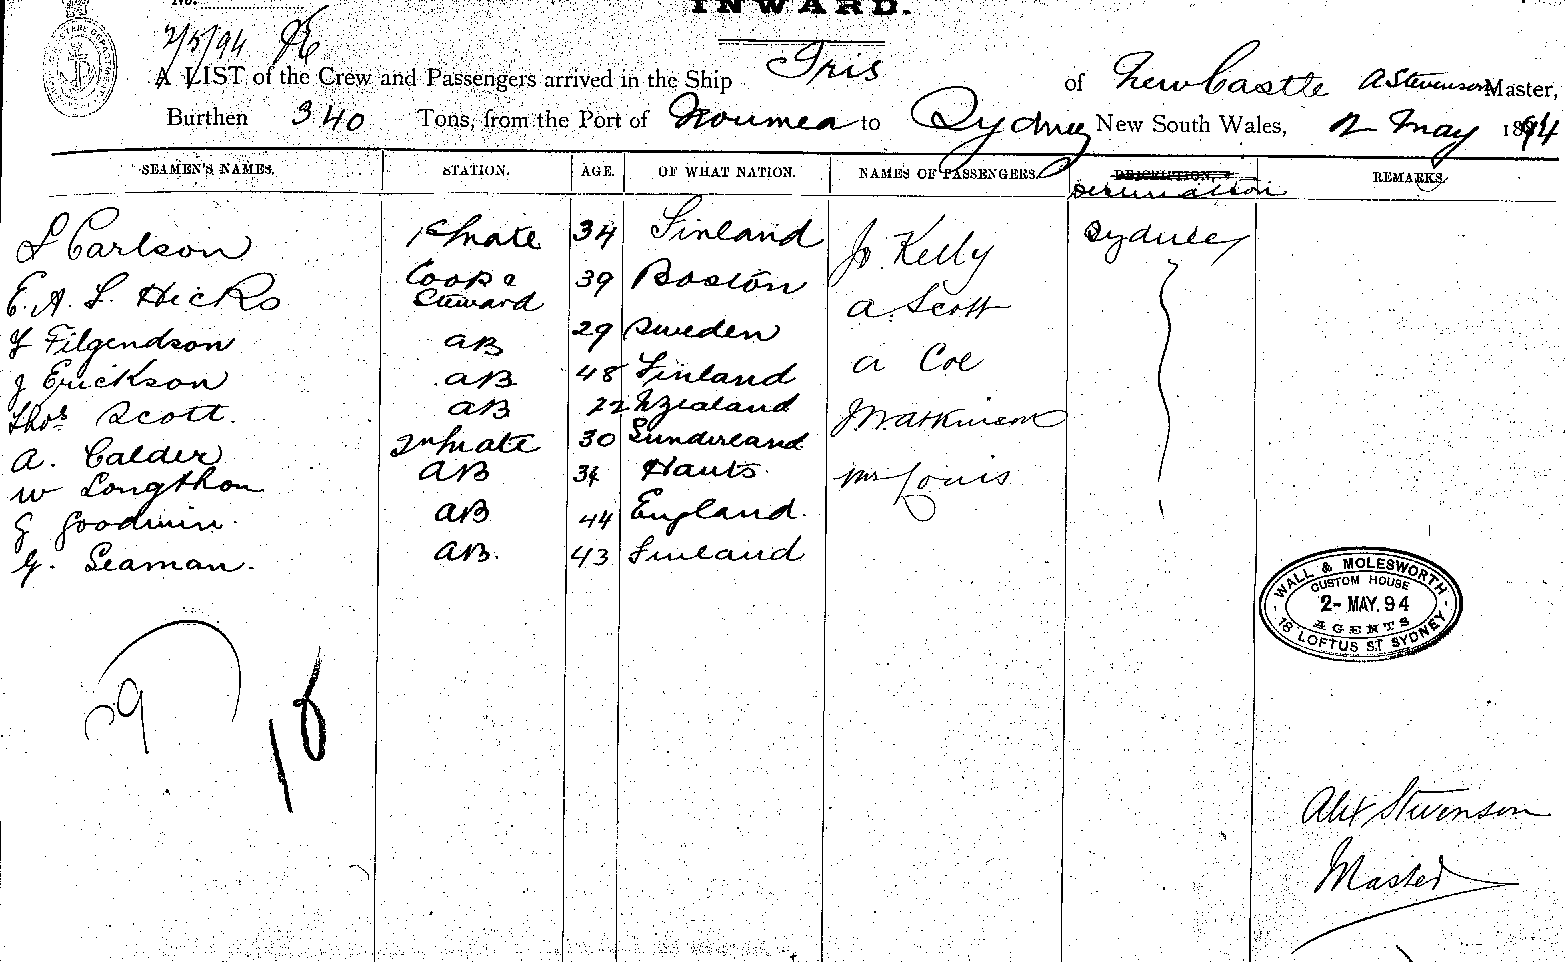 No.
INWARD.
2/5/94
A LIST of the Crew and Passengers arrived in the Ship Iris of NewCastle A Stevenson Master,
Burthen 340 Tons, from the Port of Noumea to Sydney New South Wales, 2 May 1894
SEAMEN'S NAMES. STATION. AGE. OF WHAT NATION. NAMES OF PASSENGERS. DESCRIPTION. REMARKS
Destination
L Carlson 1st Mate 34 Finland Jo. Kelly Sydney
E. A. L. Hicks Cook & Steward 39 Boston A. Scott
F Filgendson AB 29 Sweden A Coe
J Erickson AB 48 Finland J Watkinson
Thos Scott. AB 22 N Zealand
A. Calder 2nd Mate 30 Sunderland Mr Louis
W Longthon AB 34 Hants
G Goodwin. AB 44 England.
G. Seaman. AB. 43 Finland
WALL & MOLESWORTH
CUSTOM HOUSE
2- MAY. 94
AGENTS
18 LOFTUS ST SYDNEY
9
18
Alex Stevenson
Master